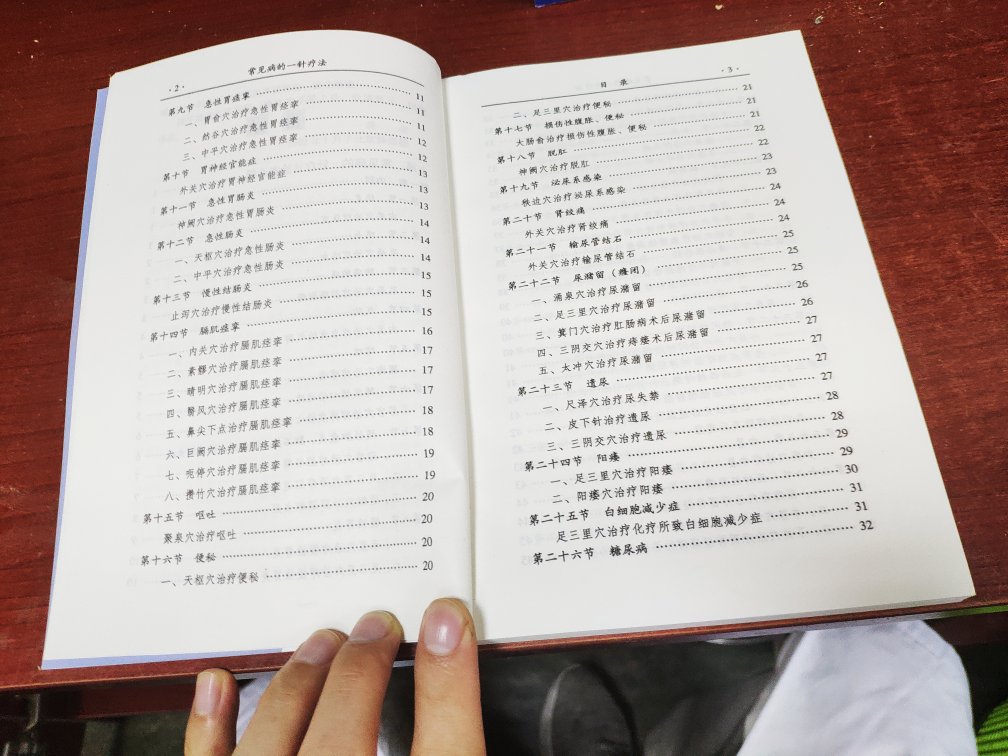 · 2 · 常见病的一针疗法
第九节 急性胃痉挛 …… 11
一、胃俞穴治疗急性胃痉挛 …… 11
二、然谷穴治疗急性胃痉挛 …… 11
三、中平穴治疗急性胃痉挛 …… 12
第十节 胃神经官能症 …… 12
外关穴治疗胃神经官能症 …… 13
第十一节 急性胃肠炎 …… 13
神阙穴治疗急性胃肠炎 …… 13
第十二节 急性肠炎 …… 14
一、天枢穴治疗急性肠炎 …… 14
二、中平穴治疗急性肠炎 …… 14
第十三节 慢性结肠炎 …… 15
止泻穴治疗慢性结肠炎 …… 15
第十四节 膈肌痉挛 …… 15
一、内关穴治疗膈肌痉挛 …… 16
二、素髎穴治疗膈肌痉挛 …… 17
三、睛明穴治疗膈肌痉挛 …… 17
四、翳风穴治疗膈肌痉挛 …… 17
五、鼻尖下点治疗膈肌痉挛 …… 18
六、巨阙穴治疗膈肌痉挛 …… 18
七、呃停穴治疗膈肌痉挛 …… 19
八、攒竹穴治疗膈肌痉挛 …… 19
第十五节 呕吐 …… 20
聚泉穴治疗呕吐 …… 20
第十六节 便秘 …… 20
一、天枢穴治疗便秘 …… 20
目 录 · 3 ·
二、足三里穴治疗便秘 …… 21
第十七节 损伤性腹胀、便秘 …… 21
大肠俞治疗损伤性腹胀、便秘 …… 21
第十八节 脱肛 …… 22
神阙穴治疗脱肛 …… 22
第十九节 泌尿系感染 …… 23
秩边穴治疗泌尿系感染 …… 23
第二十节 肾绞痛 …… 24
外关穴治疗肾绞痛 …… 24
第二十一节 输尿管结石 …… 24
外关穴治疗输尿管结石 …… 25
第二十二节 尿潴留（癃闭） …… 25
一、涌泉穴治疗尿潴留 …… 25
二、足三里穴治疗尿潴留 …… 26
三、箕门穴治疗肛肠病术后尿潴留 …… 26
四、三阴交穴治疗痔瘘术后尿潴留 …… 27
五、太冲穴治疗尿潴留 …… 27
第二十三节 遗尿 …… 27
一、尺泽穴治疗尿失禁 …… 27
二、皮下针治疗遗尿 …… 28
三、三阴交穴治疗遗尿 …… 28
第二十四节 阳痿 …… 29
一、足三里穴治疗阳痿 …… 29
二、阳痿穴治疗阳痿 …… 30
第二十五节 白细胞减少症 …… 31
足三里穴治疗化疗所致白细胞减少症 …… 31
第二十六节 糖尿病 …… 32